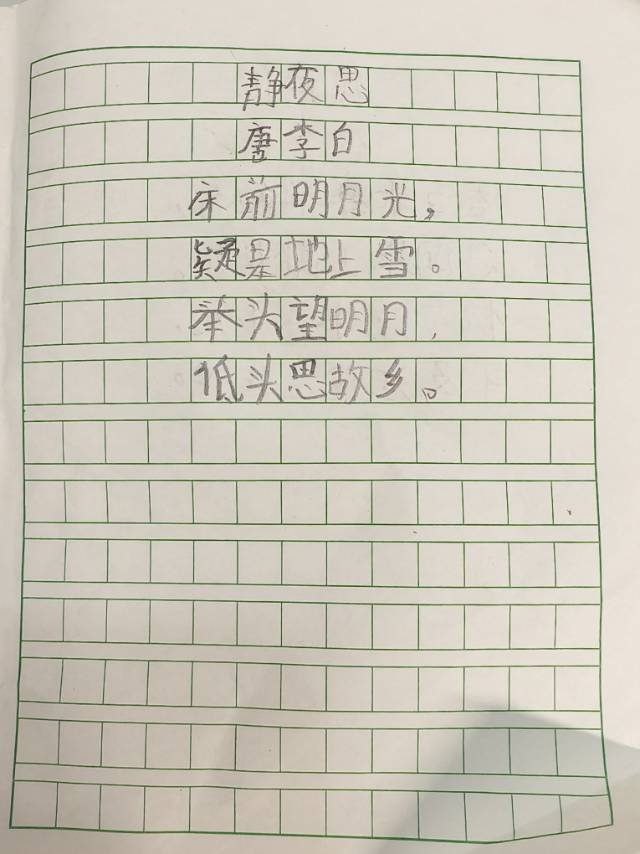 静夜思
唐李白
床前明月光，
疑是地上雪。
举头望明月，
低头思故乡。